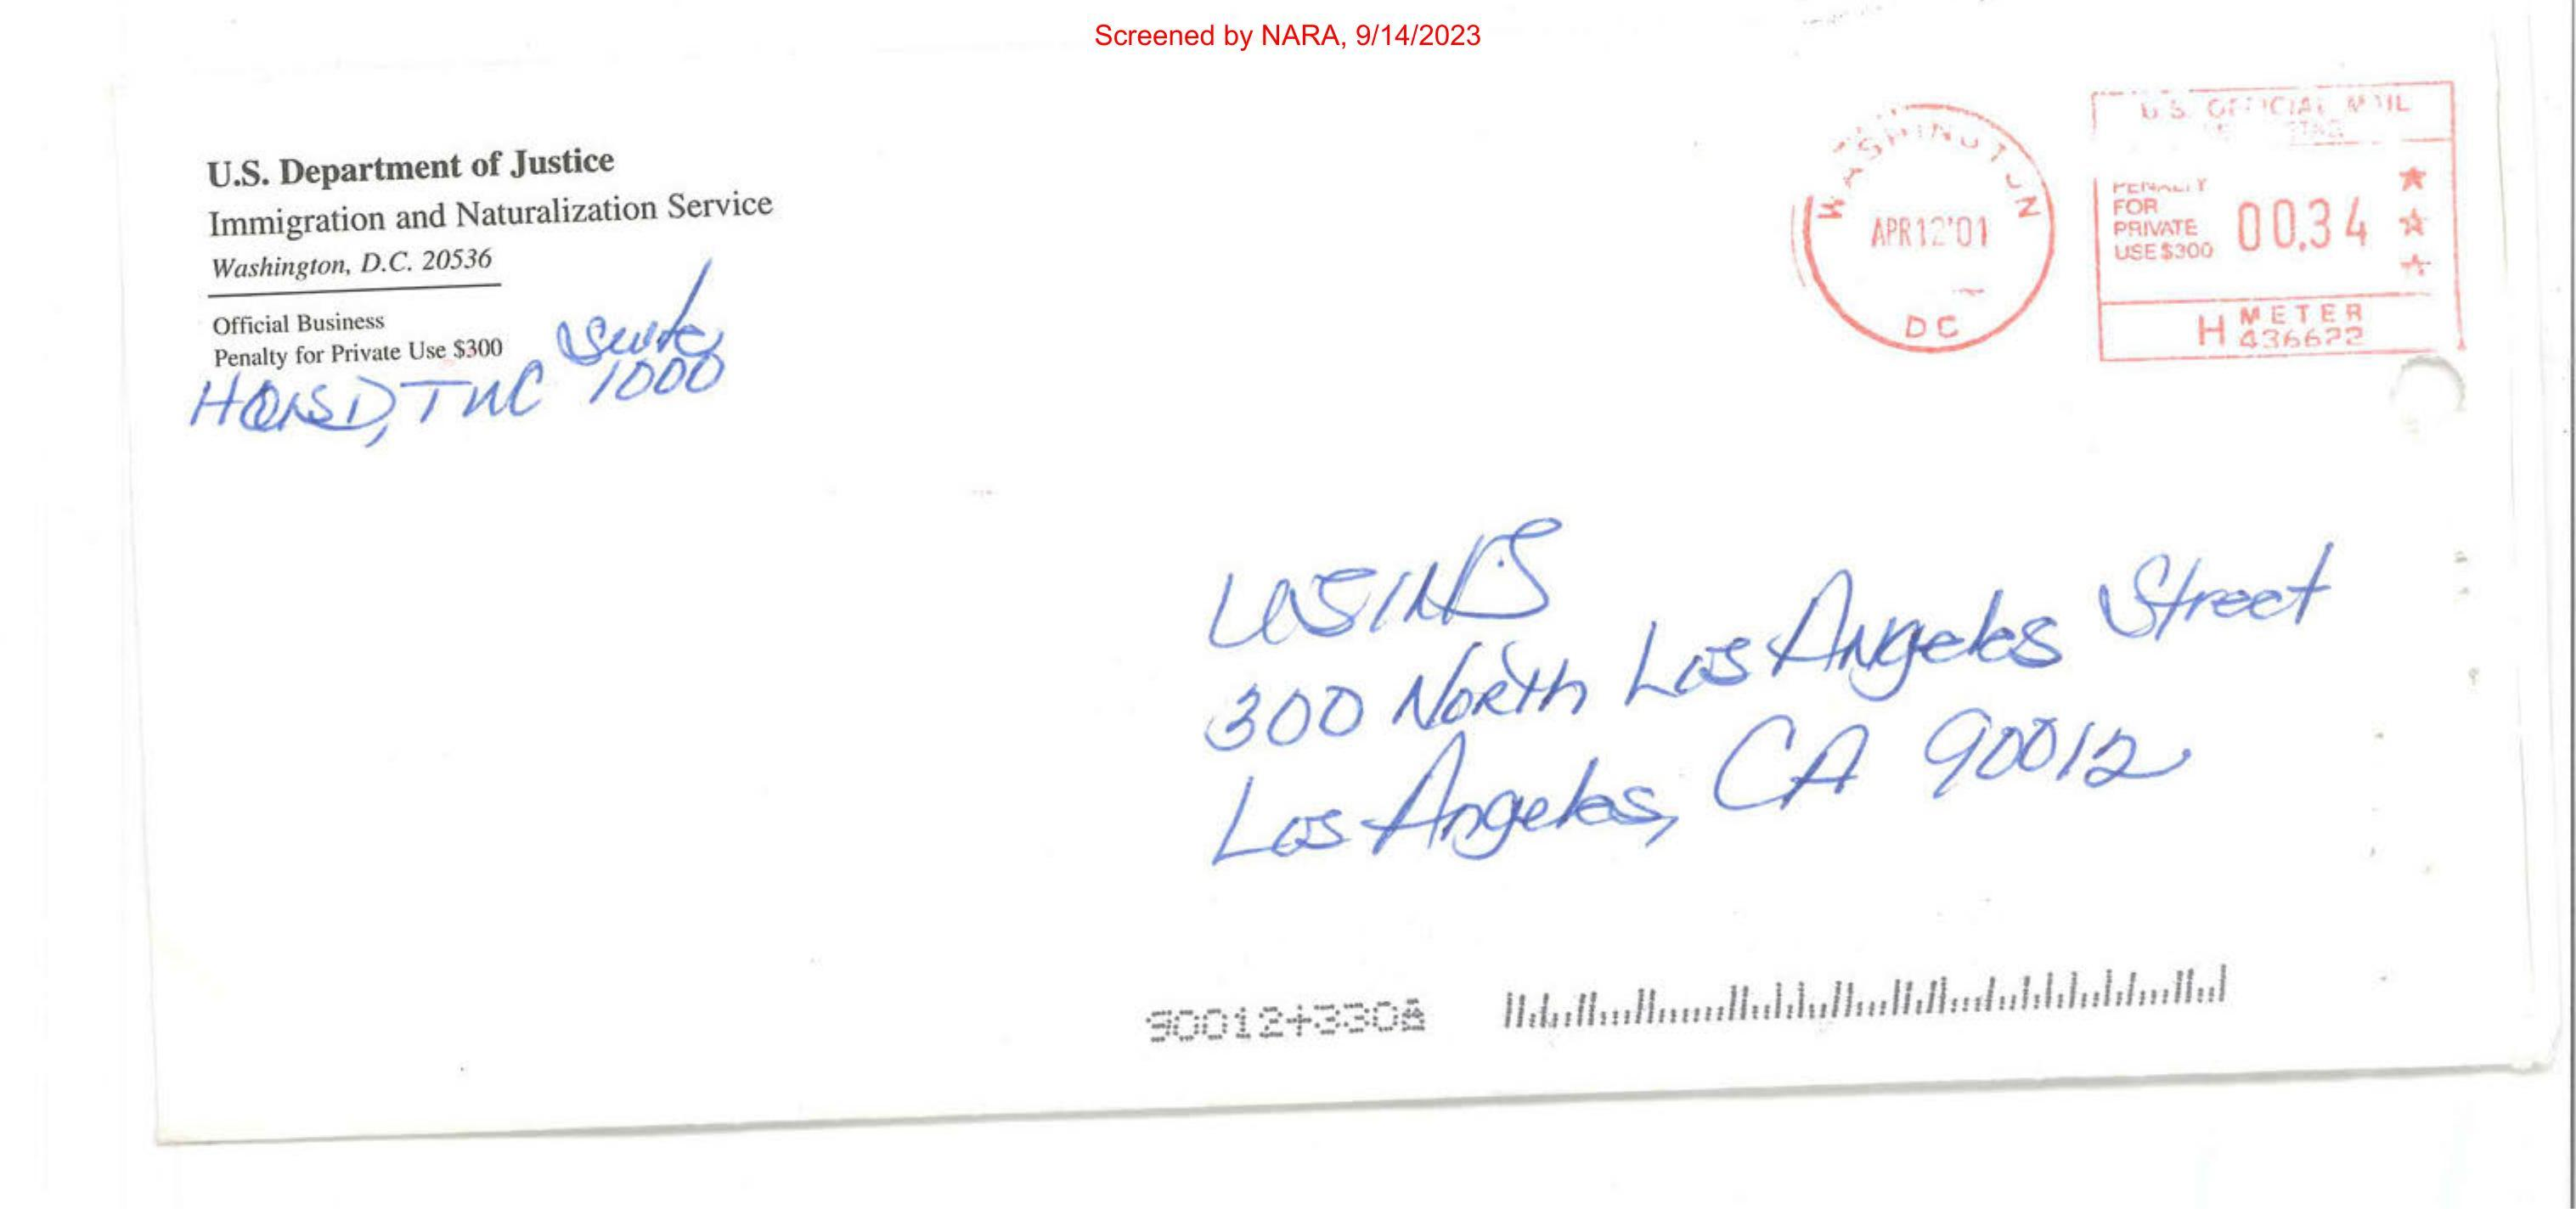 Screened by NARA, 9/14/2023
U.S. Department of Justice
Immigration and Naturalization Service
Washington, D.C. 20536
Official Business
Penalty for Private Use $300
Suite
1000
WASHINGTON
APR 12'01
DC
U.S. OFFICIAL MAIL
PENALTY
FOR
PRIVATE
USE $300
00.34
H METER
436622
USINS
300 North Los Angeles Street
Los Angeles, CA 90012